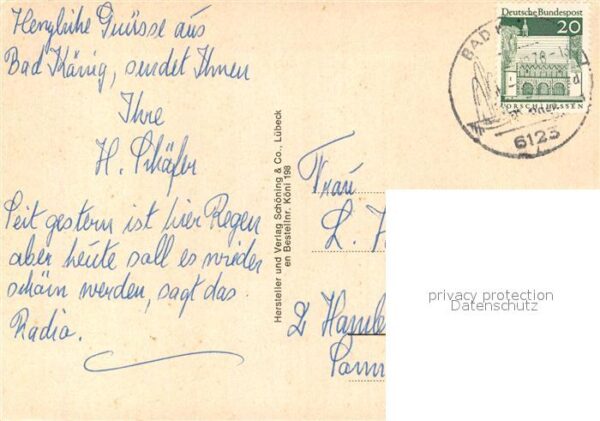 Herzliche Grüsse aus
Bad König, sendet Ihnen
Ihre
H. Schäfer
Seit gestern ist hier Regen
aber heute soll es wieder
schön werden, sagt das
Radio.
Hersteller und Verlag Schöning & Co., Lübeck
en Bestellnr. Köni 198
Deutsche Bundespost
20
LORSCH/HESSEN
BAD K
6123
Frau
L.
2 Hamb
privacy protection
Datenschutz